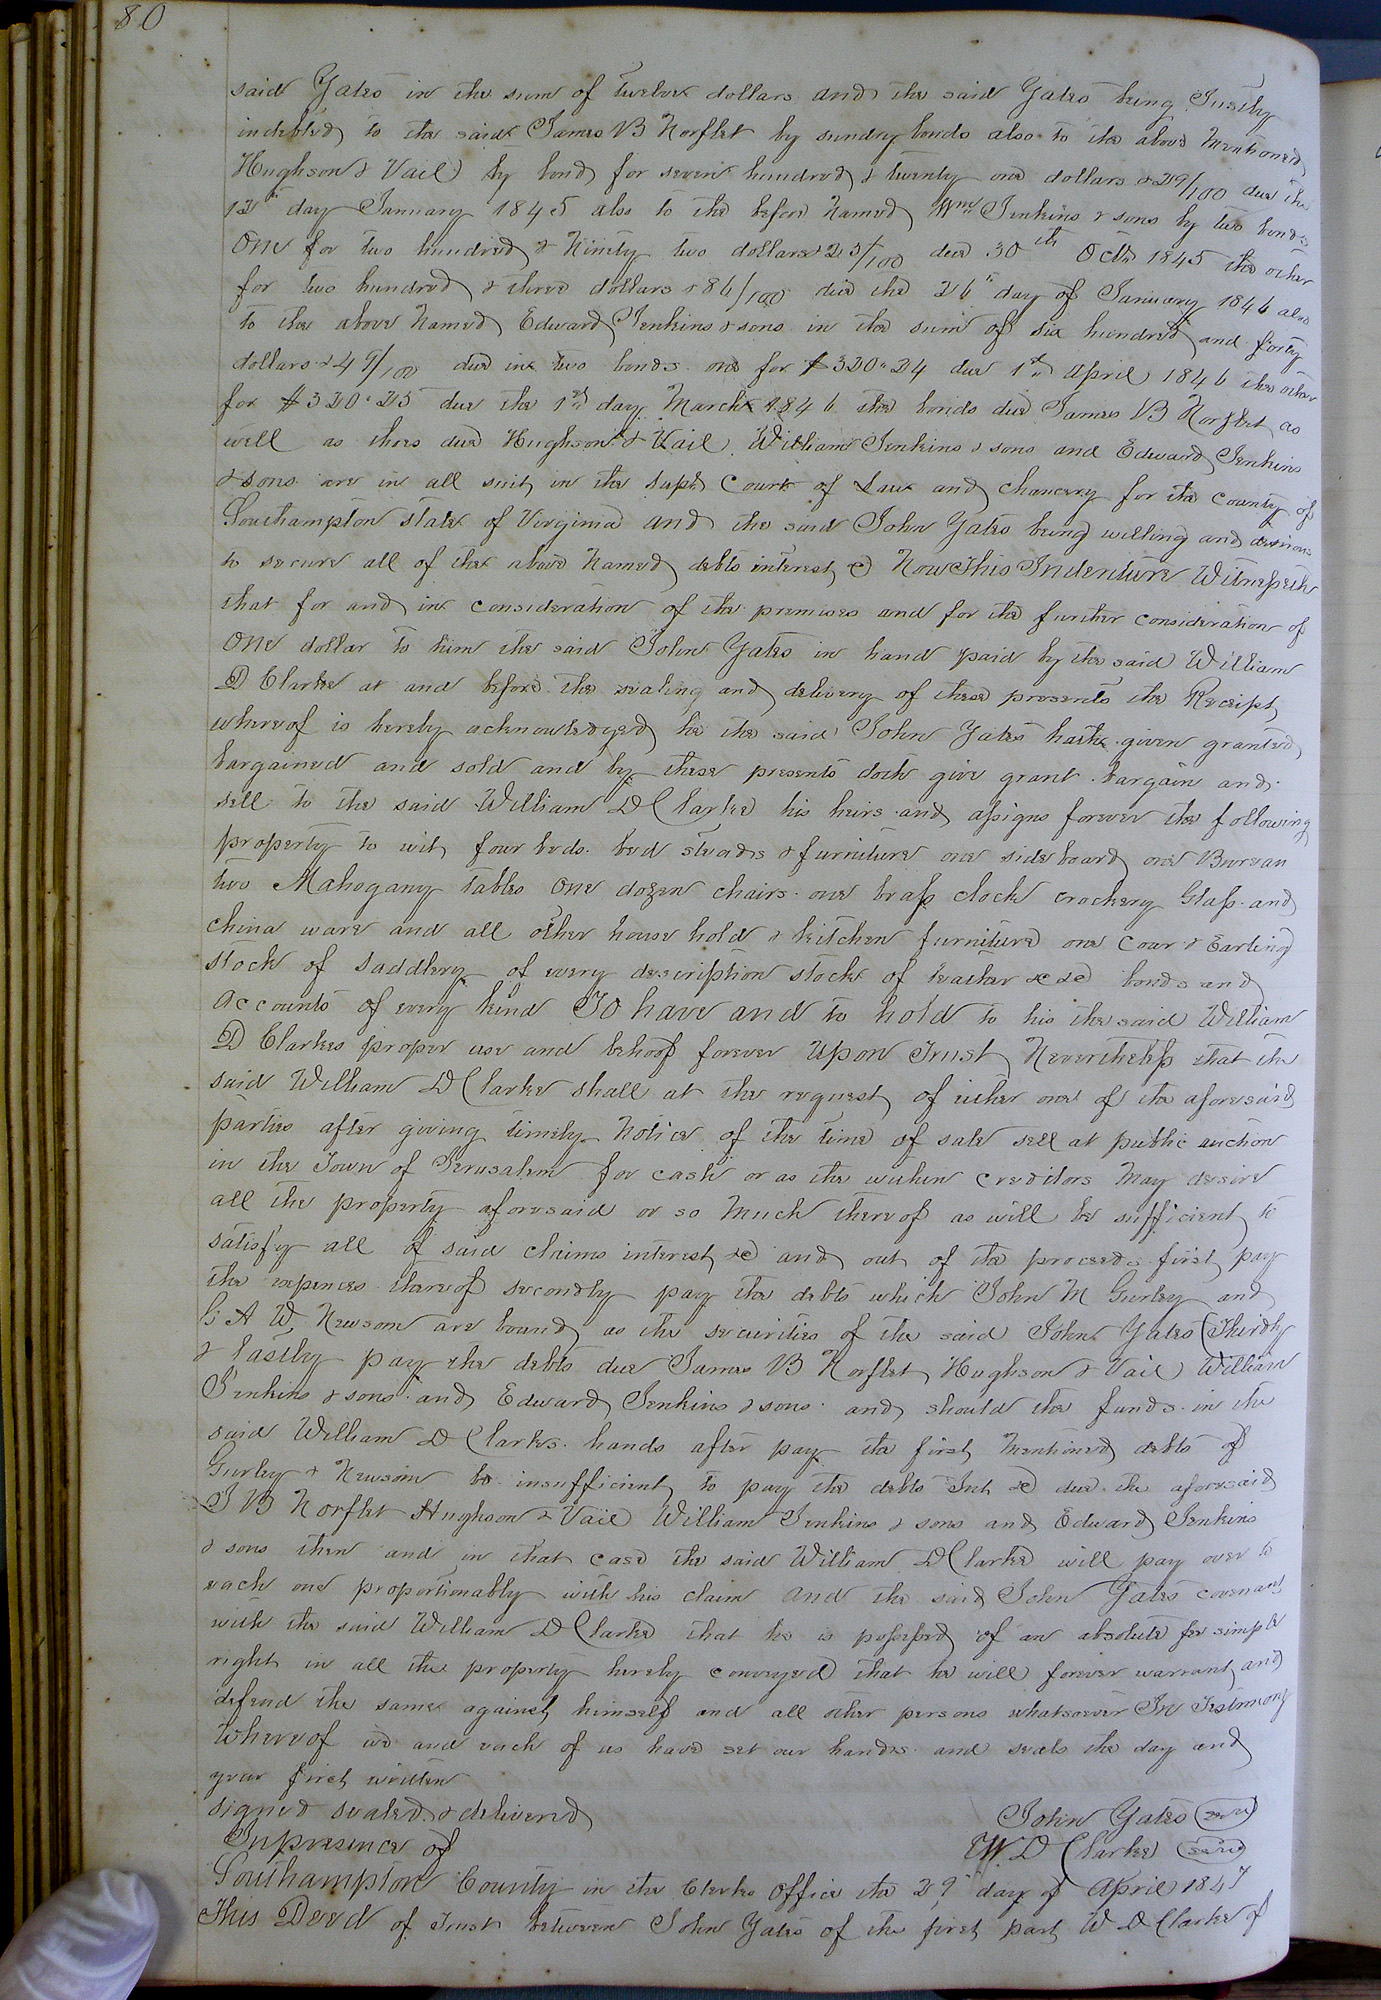 80
said Yates in the sum of twelve dollars and the said Yates being Justly
indebted to the said James B Norflet by sundry bonds also to the above mentioned
Hughson & Vail by bond for seven hundred & twenty one dollars & 29/100 due the
12th day January 1845 also to the before named Wm Jenkins & sons by two bonds
One for two hundred & Ninity two dollars & 25/100 due 30th Octr 1845 the other
for two hundred & three dollars & 86/100 due the 26th day of January 1846 also
to the above Named Edward Jenkins & sons in the sum of six hundred and forty
dollars & 49/100 due in two bonds one for $320.24 due 1st April 1846 the other
for $320.25 due the 1st day March 1846 the bonds due James B Norflet as
well as thos due Hughson & Vail William Jenkins & sons and Edward Jenkins
& sons are in all suit in the Supr Court of Law and chancery for the county of
Southampton state of Virginia and the said John Yates being willing and desirous
to secure all of the above Named debts interest &c Now This Indenture Witnesseth
that for and in consideration of the premises and for the further consideration of
One dollar to him the said John Yates in hand paid by the said William
D Clarke at and before the sealing and delivery of these presents the Receipt
whereof is hereby acknowledged he the said John Yates hath given granted
bargained and sold and by these presents doth give grant bargain and
sell to the said William D Clarke his heirs and assigns forever the following
property to wit four beds bed steads & furniture one side board one Bureau
two Mahogany tables One dozen chairs one brass clock crockery Glass and
china ware and all other house hold & kitchen furniture one cow & Earling
stock of Saddlery of every description stock of leather &c &c bonds and
Accounts of every kind To have and to hold to his the said William
D Clarkes proper use and behoof forever Upon Trust Nevertheless that the
said William D Clarke shall at the request of either one of the aforesaid
parties after giving timely Notice of the time of sale sell at public auction
in the Town of Jerusalem for cash or as the within creditors may desire
all the property aforesaid or so Much thereof as will be sufficient to
satisfy all of said claims interest &c and out of the proceeds first pay
the expences thereof secondly pay the debts which John M Gurley and
G A W Newsom are bound as the securities of the said John Yates (Thirdly
& lastly pay the debts due James B Norflet Hughson & Vail William
Jenkins & sons and Edward Jenkins & sons and should the funds in the
said William D Clarkes hands after pay the first mentioned debts of
Gurley & Newsom be insufficient to pay the debts Int &c due the aforesaid
J B Norflet Hughson & Vail William Jenkins & sons and Edward Jenkins
& sons then and in that case the said William D Clarke will pay over to
each one proportionably with his claim and the said John Yates covenant
with the said William D Clarke that he is possessed of an absolute fee simple
right in all the property hereby conveyed that he will forever warrant and
defend the same against himself and all other persons whatsoever In Testimony
Whereof we and each of us have set our hands and seals the day and
year first written
signed sealed & delivered John Yates (seal)
In presence of W. D Clarke (seal)
Southampton County in the Clerks Office the 29th day of April 1847
This Deed of Trust between John Yates of the first part W D Clarke of